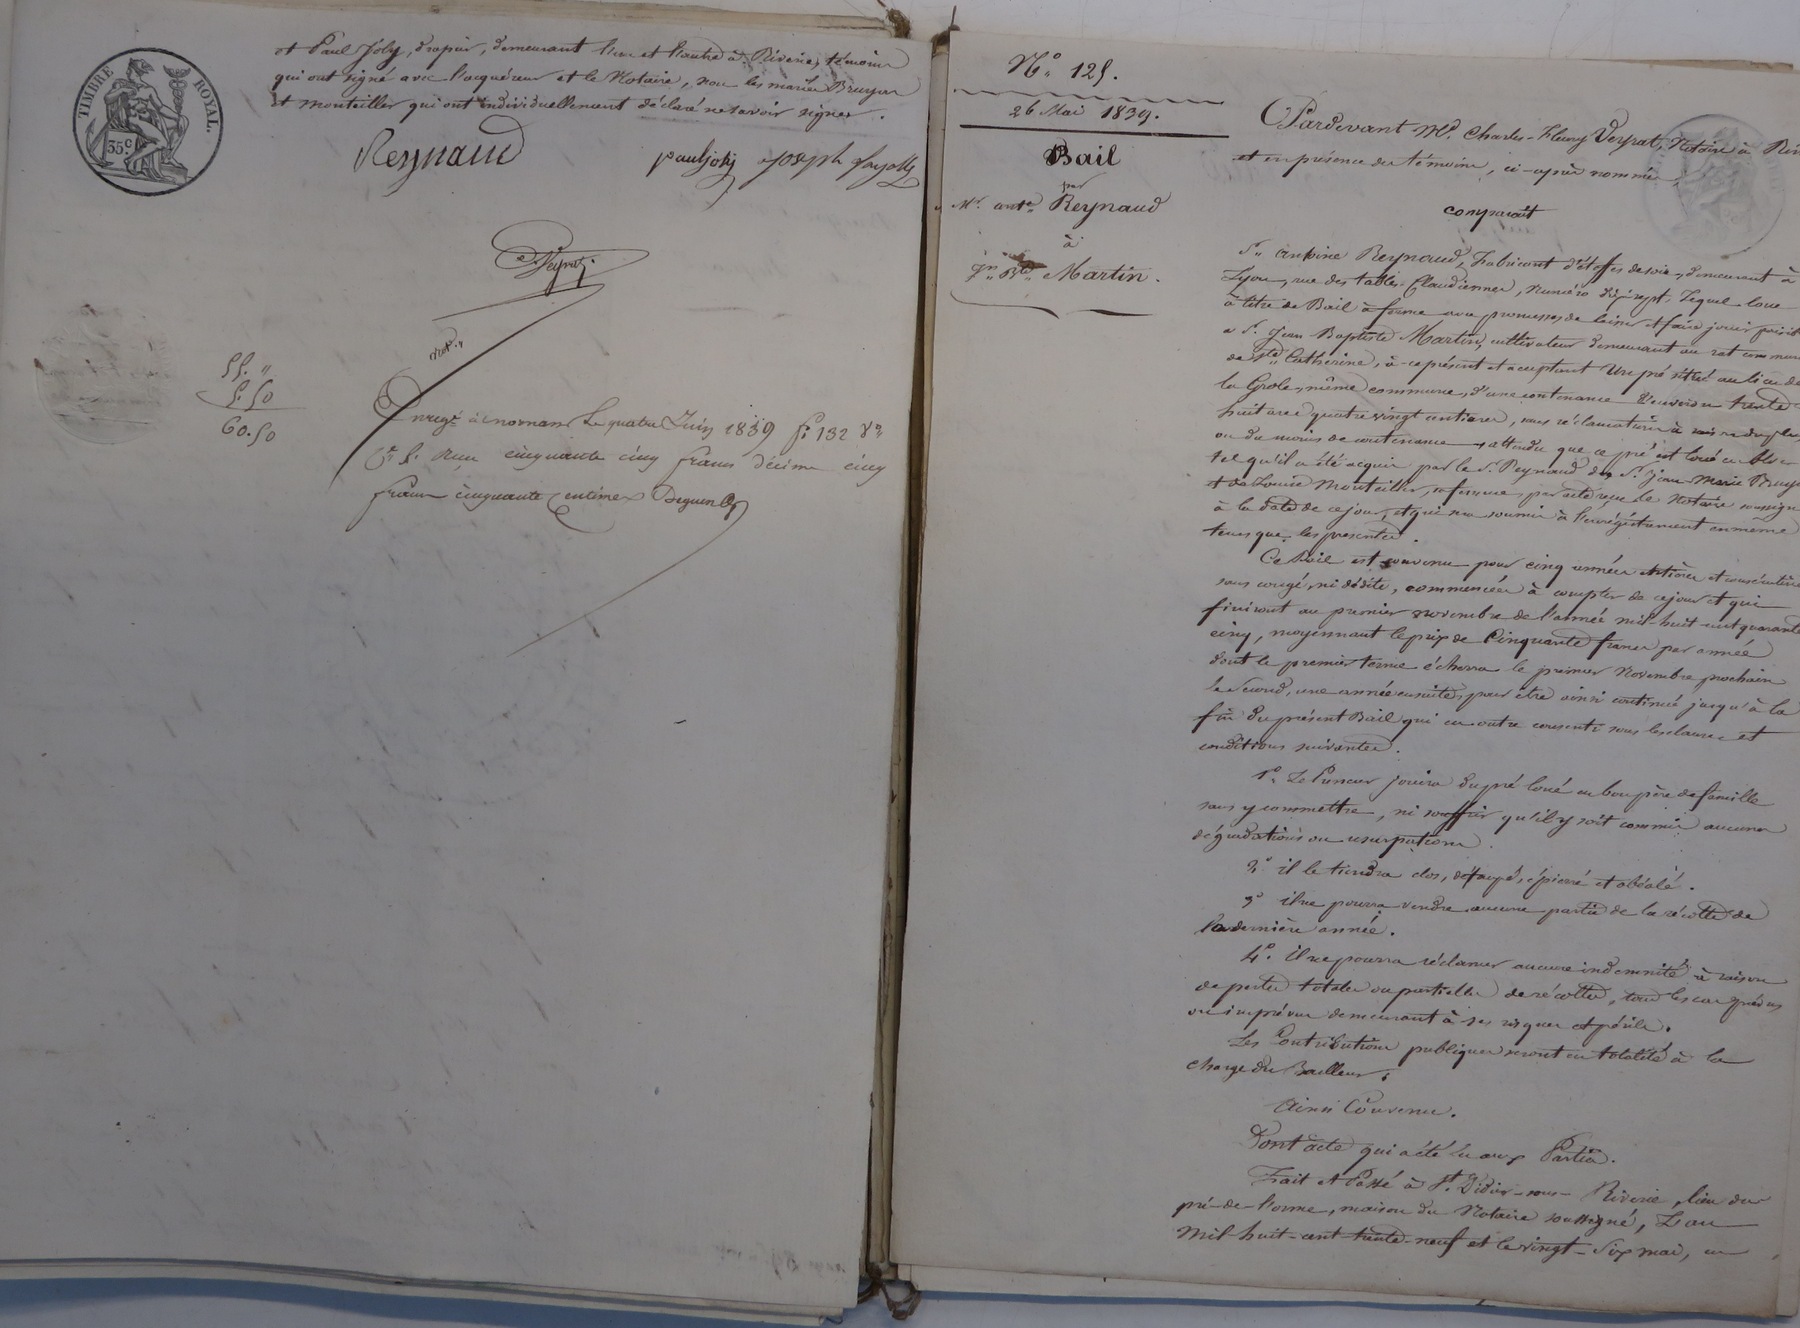 TIMBRE ROYAL.
35c
et Paul Joly, drapier, demeurant l'un et l'autre à Riverie, témoins
qui ont signé avec l'acquéreur et le Notaire, non les mariés Bruyas
et montellier qui ont individuellement déclaré ne savoir signer.
Reynaud paul joly joseph
Veyrat
not.re
55. "
5. 50
60. 50
Enregé à mornant Le quatre Juin 1839 f° 132 Vo
Ce 5. Reçu cinquante cinq francs décime cinq
francs cinquante centimes Deguen
N° 125.
26 Mai 1839.
Bail
par
Mr. ante. Reynaud
à
Jn. Bte. Martin.
Pardevant Me. Charles-Fleury Veyrat, Notaire à
et en présence des témoins, ci-après nommés,
comparait
Sr. antoine Reynaud, Fabricant d'étoffes de soie, demeurant à
Lyon, rue des tables Claudiennes, numéro dix sept, Lequel loue
à titre de Bail à ferme avec promesses de laisser et faire jouir
a Sr. Jean Baptiste Martin, cultivateur demeurant au commune
de Ste. Catherine, à-ce présent et acceptant Un pré situé au lieu de
la Grole, même commune, d'une contenance d'environ trente
huit ares quatre vingt centiares, sans réclamation à
ou du moins de contenance, attendu que ce pré est loué en bloc
tel qu'il a été acquis par le Sr. Reynaud des Sr. Jean Marie
et de Louise Montellier, sa femme, par acte reçu le Notaire
à la date de ce jour, et qui sera soumis à l'enrégistrement en même
tems que les présentes.
Ce Bail est convenu pour cinq années entières et
sans congé, ni dédite, commencées à compter de ce jour et qui
finiront au premier novembre de l'année mil-huit-cent quarante
cinq, moyennant le prix de Cinquante francs par année
dont le premier terme écherra le premier Novembre prochain
le Second, une année ensuite, pour être ainsi continué jusqu'à la
fin du présent Bail qui en outre consenti sous les clauses et
conditions suivantes.
1°. Le Preneur jouira du pré loué en bon père de famille
sans y commettre, ni souffrir qu'il y soit commis aucunes
dégradations ou usurpations.
2° il le tiendra clos, détaupé, épierré et
3° il ne pourra vendre aucune partie de la récolte de
la dernière année.
4°. il ne pourra réclamer aucune indemnité à raison
de pertes totales ou partielles de récoltes, tous les cas prévus
ou imprévus demeurant à ses risques et périls.
Les Contributions publiques seront en totalité à la
charge du Bailleur;
Ainsi Convenu.
Dont acte qui a été lu aux Parties.
Fait et Passé à St. Didier-sous-Riverie, lieu du
pré-de-l'orme, maison du Notaire soussigné, L'an
Mil huit-cent trente-neuf et le vingt-six mai, en